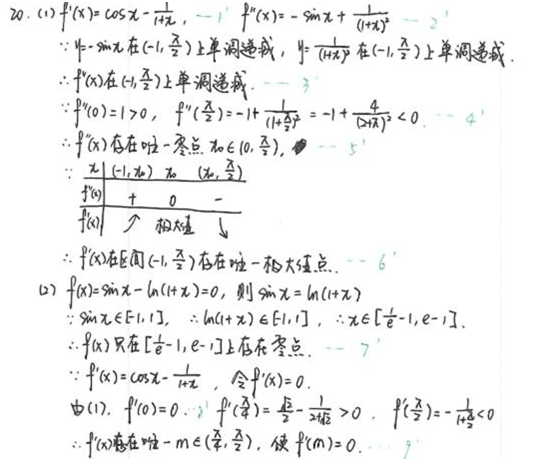 20. (1) f'(x)=cosx-1/(1+x), ---1' f''(x)=-sinx+1/(1+x)² ---2'
∵ y=-sinx在(-1,π/2)上单调递减, y=1/(1+x)²在(-1,π/2)上单调递减.
∴ f''(x)在(-1,π/2)上单调递减. ---3'
∵ f''(0)=1>0, f''(π/2)=-1+1/(1+π/2)²=-1+4/(2+π)²<0. ---4'
∴ f''(x)存在唯一零点 x₀∈(0,π/2), ---5'
∵ x (-1,x₀) x₀ (x₀,π/2)
f''(x) + 0 -
f'(x) ↗ 极大值 ↘
∴ f'(x)在区间(-1,π/2)存在唯一极大值点. ---6'
(2) f(x)=sinx-ln(1+x)=0, 则 sinx=ln(1+x)
∵ sinx∈[-1,1], ∴ ln(1+x)∈[-1,1], ∴ x∈[1/e-1,e-1].
∴ f(x)只在[1/e-1,e-1]上存在零点. ---7'
∵ f'(x)=cosx-1/(1+x), 令f'(x)=0.
由(1), f'(0)=0 --8' f'(π/4)=√2/2-1/ >0, f'(π/2)=-1/(1+π/2)<0
∴ f'(x)存在唯一m∈(π/4,π/2), 使f'(m)=0. ---9'